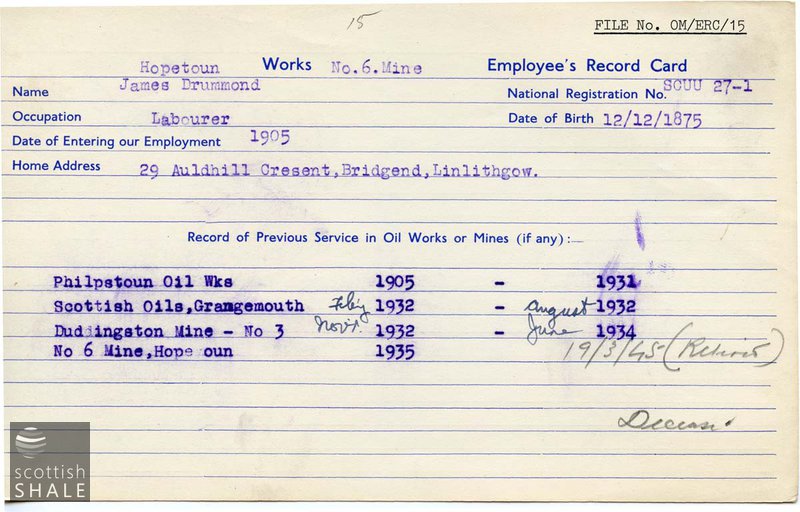 15
FILE No. OM/ERC/15
Hopetoun Works No.6.Mine Employee's Record Card
Name James Drummond National Registration No. SCUU 27-1
Occupation Labourer Date of Birth 12/12/1875
Date of Entering our Employment 1905
Home Address 29 Auldhill Cresent,Bridgend,Linlithgow.
Record of Previous Service in Oil Works or Mines (if any):—
Philpstoun Oil Wks 1905 - 1931
Scottish Oils,Grangemouth Feb'y 1932 - August 1932
Duddingston Mine - No 3 Novr. 1932 - June 1934
No 6 Mine,Hopetoun 1935 19/3/45 (Retired)
scottish
SHALE